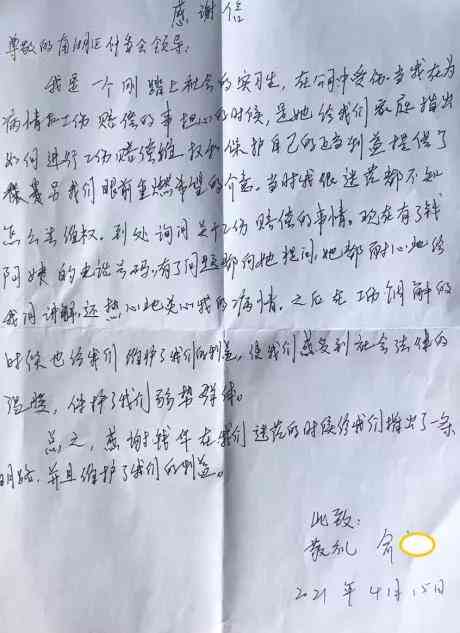 感谢信
尊敬的南明区仲委会领导:
我是一个刚踏上社会的实习生,在公司中受伤。当我在为
病情和工伤赔偿的事担心的时候,是她给我们家庭指出
如何进行工伤赔偿维权和保护自己的正当利益提供了
我们眼前重燃希望的介意。当时我很迷茫都不知
怎么去维权。到处询问关于工伤赔偿的事情。现在有了钱
阿姨的电话号码,有了问题都向她提问,她都耐心地给
我们讲解,还热心地关心我的病情。之后在工伤调解的
时候也给我们维护了我们的利益,使我们感受到社会法律的
温暖,保护了我们弱势群体。
总之,感谢钱 在我们迷茫的时候给我们指出了一条
明路,并且维护了我们的利益。
此致:
敬礼
2021年4月15日